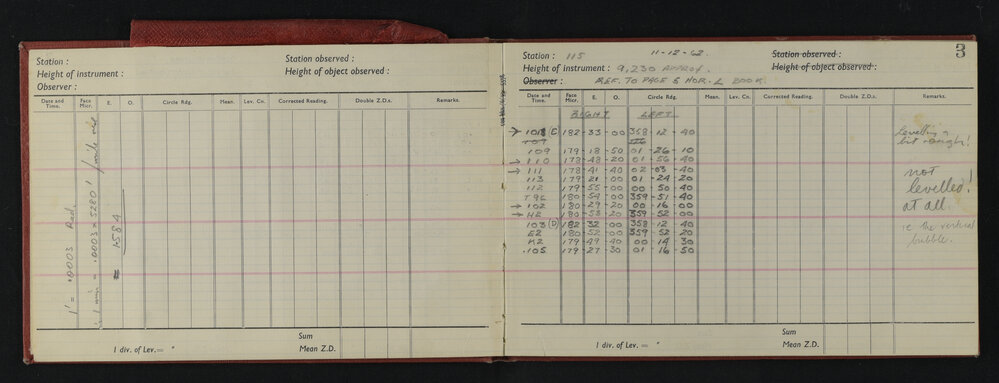 Station :
Station observed :
Height of instrument :
Height of object observed :
Observer :
Date and Time. Face Micr. E. O. Circle Rdg. Mean. Lev. Cn. Corrected Reading. Double Z.D.s. Remarks.
1' = .0003 Rad.
1 min = .0003 x 5280' / mile
= 1.584
Sum
1 div. of Lev. = " Mean Z.D.
3
Station : 115 11-12-62. Station observed :
Height of instrument : 9,230 APPROX. Height of object observed :
Observer : REF. TO PAGE 6 HOR. L BOOK.
Date and Time. Face Micr. E. O. Circle Rdg. Mean. Lev. Cn. Corrected Reading. Double Z.D.s. Remarks.
RIGHT LEFT
103 (E) 182-33-00 358-12-40 Levelling a
109 179-18-50 01-26-10 bit rough!
110 178-48-20 01-56-40
111 178-41-40 02-03-40 not
113 179-21-00 01-24-20 levelled!
112 179-55-00 00-50-40
T9E 180-54-00 359-51-40
102 180-29-20 00-16-00 at all.
HE 180-53-20 359-52-00
103 (D) 182-32-00 358-12-40 ie the vertical
E2 180-52-00 359-52-20 bubble.
K2 179-49-40 00-14-30
105 179-27-30 01-16-50
Sum
1 div. of Lev. = " Mean Z.D.